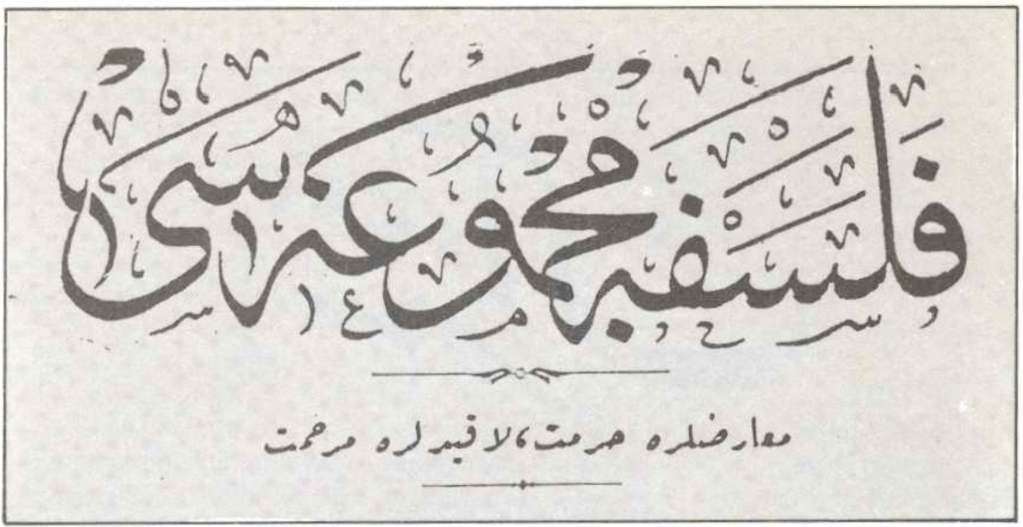 فلسفه مجموعه سی
معارضلره حرمت، لاقيدلره مرحمت